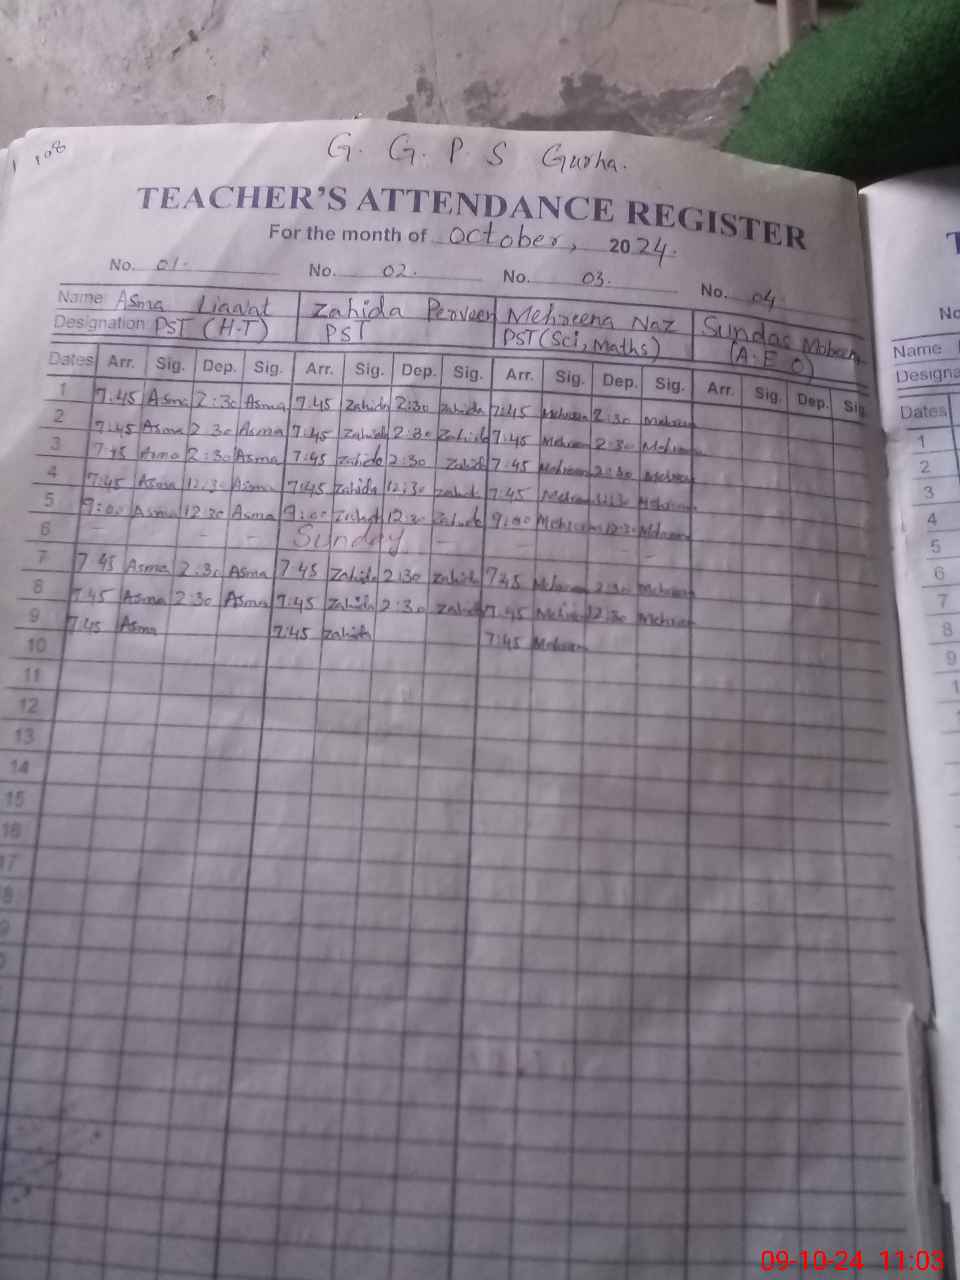 108
G. G. P. S Gurha.
TEACHER'S ATTENDANCE REGISTER
For the month of October, 2024.
No. 01. No. 02. No. 03. No. 04
Name Asma Liaqat Zahida Perveen Mehreena Naz Sundas
Designation PST (H.T) PST PST (Sci, Maths) (A.E.O)
Dates Arr. Sig. Dep. Sig. Arr. Sig. Dep. Sig. Arr. Sig. Dep. Sig. Arr. Sig. Dep. Sig.
1 7:45 Asma 2:30 Asma 7:45 Zahida 2:30 Zahida 7:45 Mehreen 2:30 Mehreen
2 7:45 Asma 2:30 Asma 7:45 Zahida 2:30 Zahida 7:45 Mehreen 2:30 Mehreen
3 7:45 Asma 2:30 Asma 7:45 Zahida 2:30 Zahida 7:45 Mehreen 2:30 Mehreen
4 7:45 Asma 12:30 Asma 7:45 Zahida 12:30 Zahida 7:45 Mehreen Mehreen
5 9:00 Asma 12:30 Asma 9:00 Zahida 12:30 Zahida 9:00 Mehreen 12:30 Mehreen
6 - - - Sunday - - - -
7 7:45 Asma 2:30 Asma 7:45 Zahida 2:30 Zahida 7:45 Mehreen 2:30 Mehreen
8 7:45 Asma 2:30 Asma 7:45 Zahida 2:30 Zahida 7:45 Mehreen 12:30 Mehreen
9 7:45 Asma 7:45 Zahida 7:45 Mehreen
10
11
12
13
14
15
16
17
8
9
No
Name
Designa
Dates
1
2
3
4
5
6
7
8
9
09-10-24 11:03